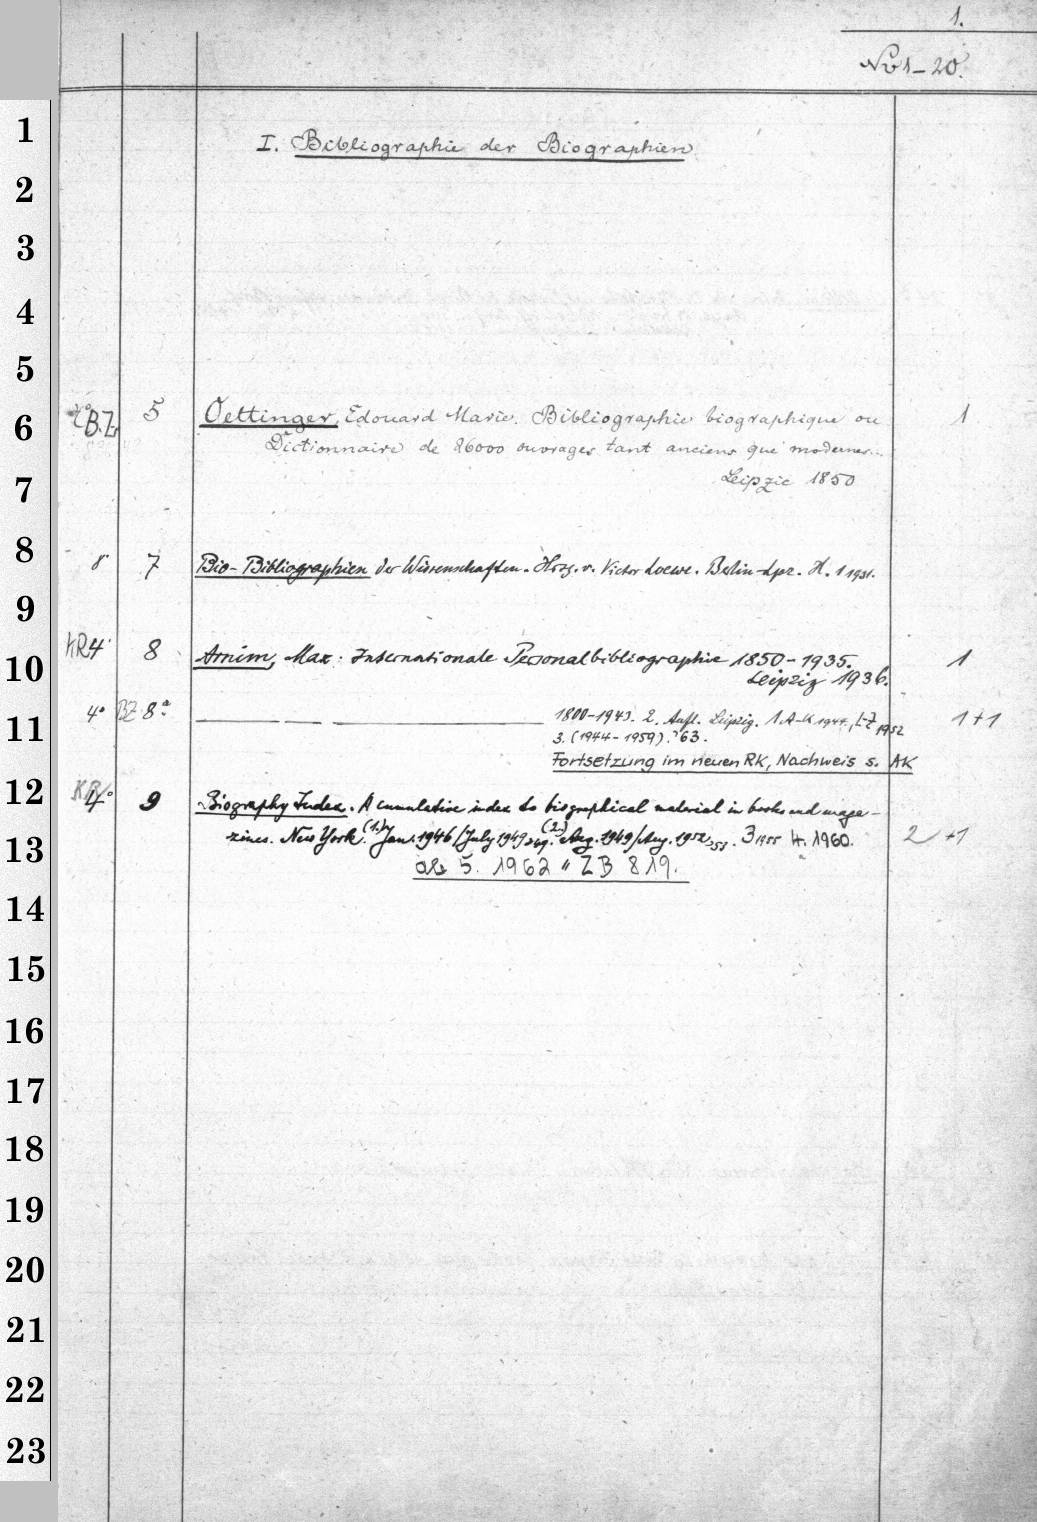 1.
No 1–20.
1
I. Bibliographie der Biographien
2
3
4
5
6
4° B.Z. 5 Oettinger, Edouard Marie. Bibliographie biographique ou 1
Dictionnaire de 26000 ouvrages tant anciens que modernes...
7
Leipzic 1850
8
8° 7 Bio-Bibliographien der Wissenschaften. Hrsg. v. Victor Loewe. Berlin-Lpz. H. 1 1931.
9
10
KR 4° 8 Arnim, Max. Internationale Personalbibliographie 1850–1935. 1
Leipzig 1936.
11
4° BZ 8a — — — 1800–1943. 2. Aufl. Leipzig. 1 A–K 1944, L–Z 1952 1+1
3. (1944–1959). '63.
Fortsetzung im neuen RK, Nachweis s. AK
12
KR 4° 9 Biography Index. A cumulative index to biographical material in books and maga-
13
zines. New York. (1.) Jan. 1946/July 1949. (2.) Aug. 1949/Aug. 1952, 53. 3 1955 4. 1960. 2 +1
ab 5. 1962 " ZB 819.
14
15
16
17
18
19
20
21
22
23